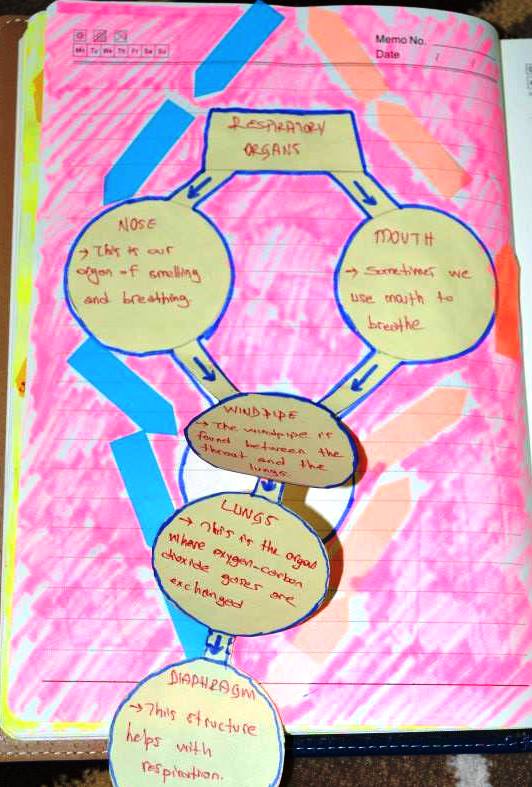 Memo No.
Mo Tu We Th Fr Sa Su
Date / /
RESPIRATORY
ORGANS
NOSE
→ This is our
organ of smelling
and breathing.
MOUTH
→ Sometimes we
use mouth to
breathe
WINDPIPE
→ The windpipe is
found between the
throat and the
lungs.
LUNGS
→ This is the organ
where oxygen-carbon
dioxide gases are
exchanged
DIAPHRAGM
→ This structure
helps with
respiration.